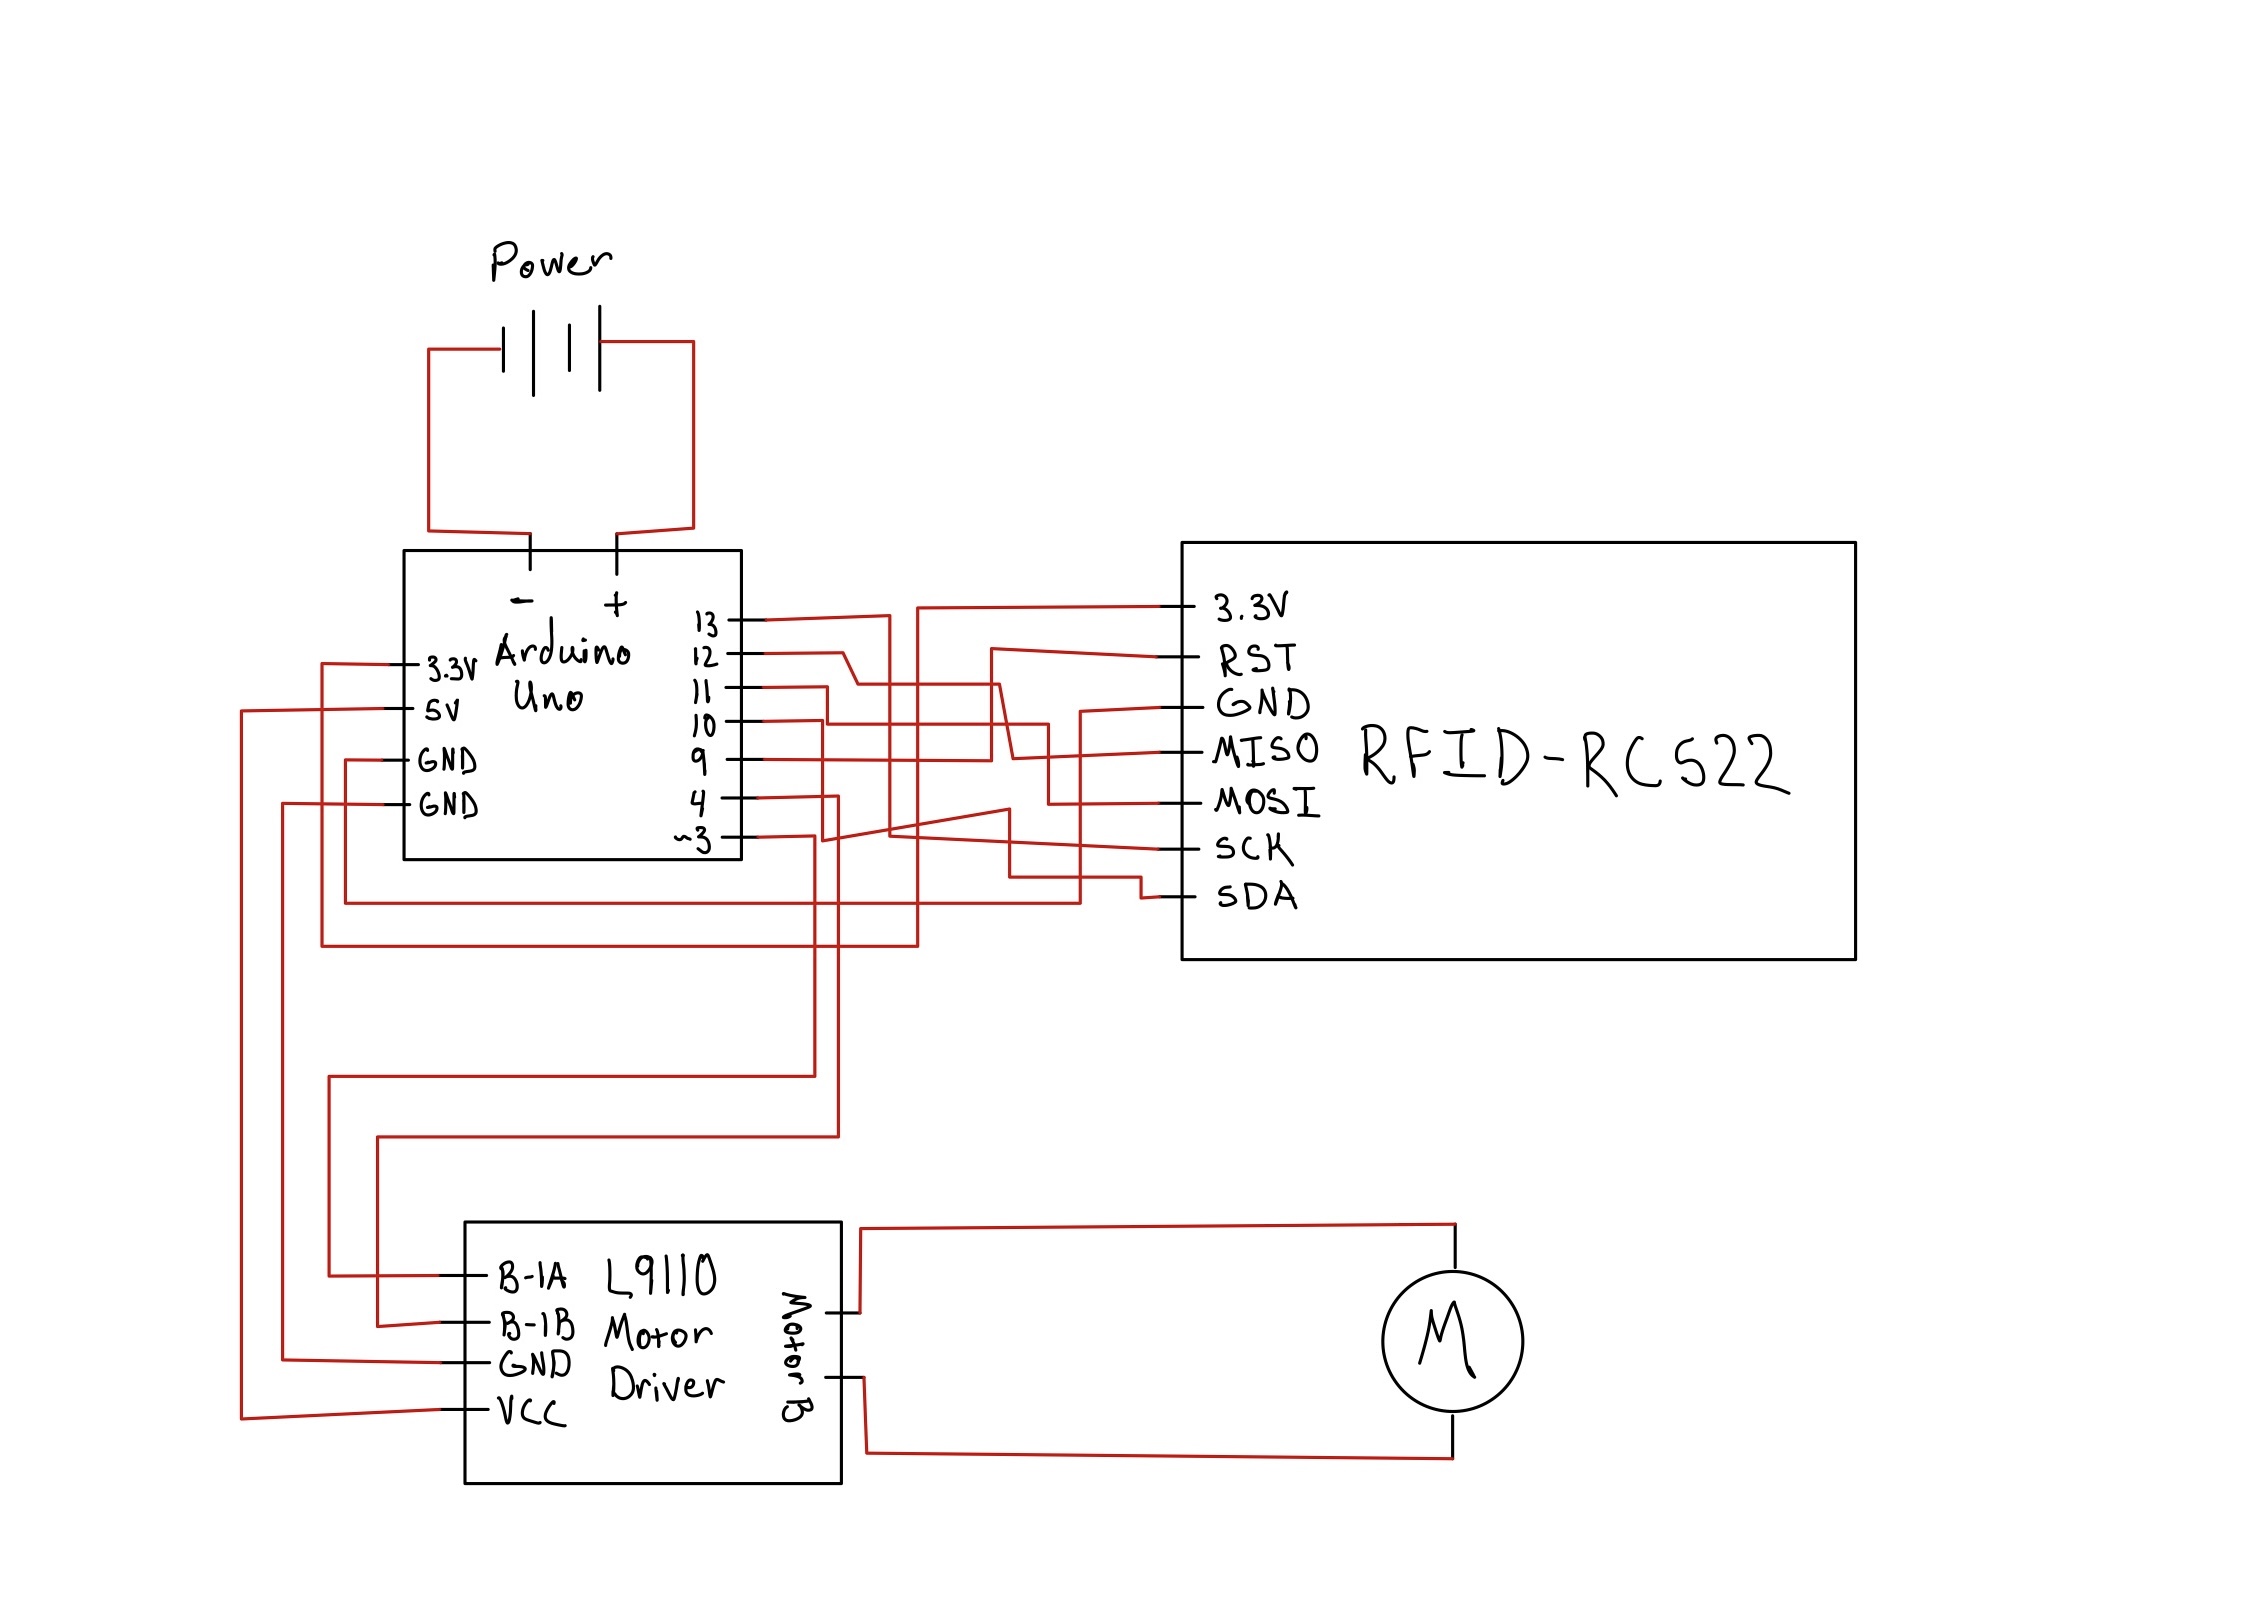 Power
- +
Arduino
Uno
3.3V
5V
GND
GND
13
12
11
10
9
4
~3
3.3V
RST
GND
MISO
MOSI
SCK
SDA
RFID-RC522
B-1A
B-1B
GND
VCC
L9110
Motor
Driver
Motor B
M